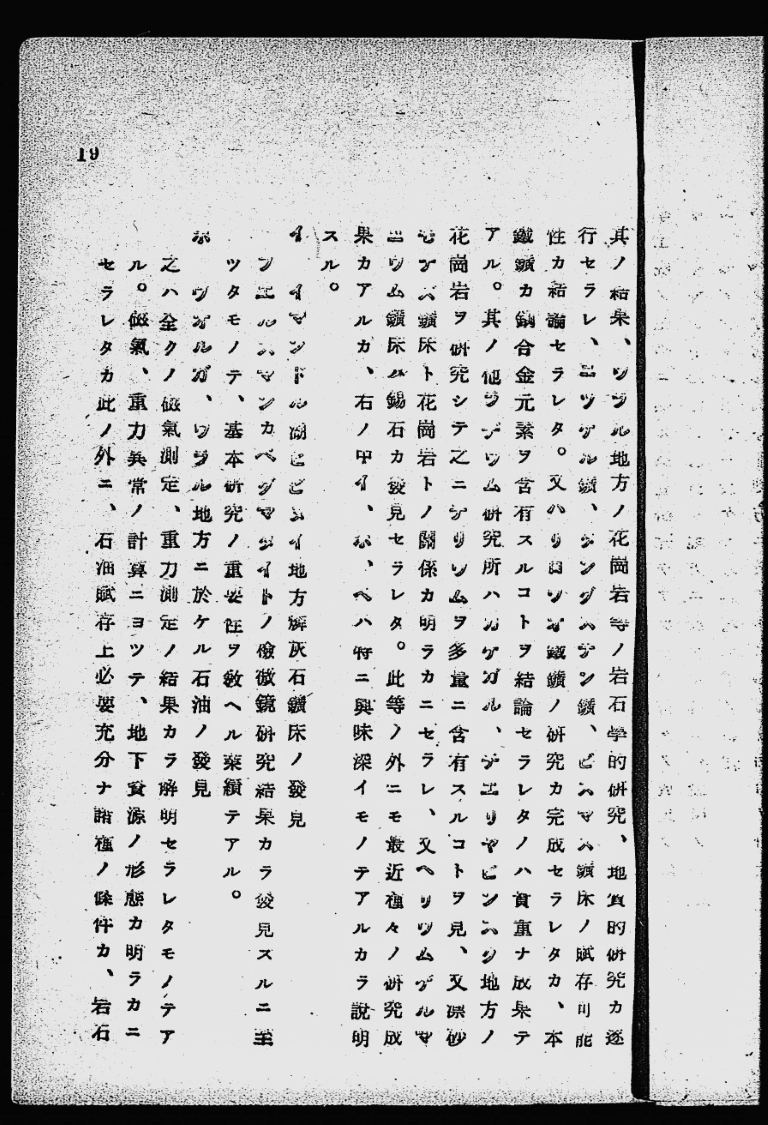 其ノ結果、ウラル地方ノ花崗岩等ノ岩石學的研究、地質的研究カ遂
行セラレ、ニツケル鑛、タングステン鑛、ビスマス鑛床ノ賦存可能
性カ結論セラレタ。又ハリロウオ鐵鑛ノ研究カ完成セラレタカ、本
鐵鑛カ鋼合金元素ヲ含有スルコトヲ結論セラレタノハ貴重ナ成果テ
アル。其ノ他ラヂウム研究所ハ カ地方ノ
花崗岩ヲ研究シテ之ニ ヲ多量ニ含有スルコトヲ見、又漂砂
鑛床ト花崗岩トノ關係カ明ラカニセラレ、又ベリウムゲルマ
ニウム鑛床ム錫石カ發見セラレタ。此等ノ外ニモ最近種々ノ研究成
果カアルカ、右ノ中イ、ホ、ヘハ特ニ興味深イモノテアルカラ說明
スル。
イ イマンドル湖ヒビヌイ地方燐灰石鑛床ノ發見
フエルスマンカペグマタイトノ儉微鏡硏究結果カラ發見スルニ至
ツタモノテ、基本硏究ノ重要性ヲ敎ヘル業績テアル。
ホ ヴオルガ、ウラル地方ニ於ケル石油ノ發見
之ハ全クノ磁氣測定、重力測定ノ結果カラ解明セラレタモノテア
ル。磁氣、重力異常ノ計算ニヨツテ、地下資源ノ形態カ明ラカニ
セラレタカ此ノ外ニ、石油賦存上必要充分ナ諸種ノ條件カ、岩石
19